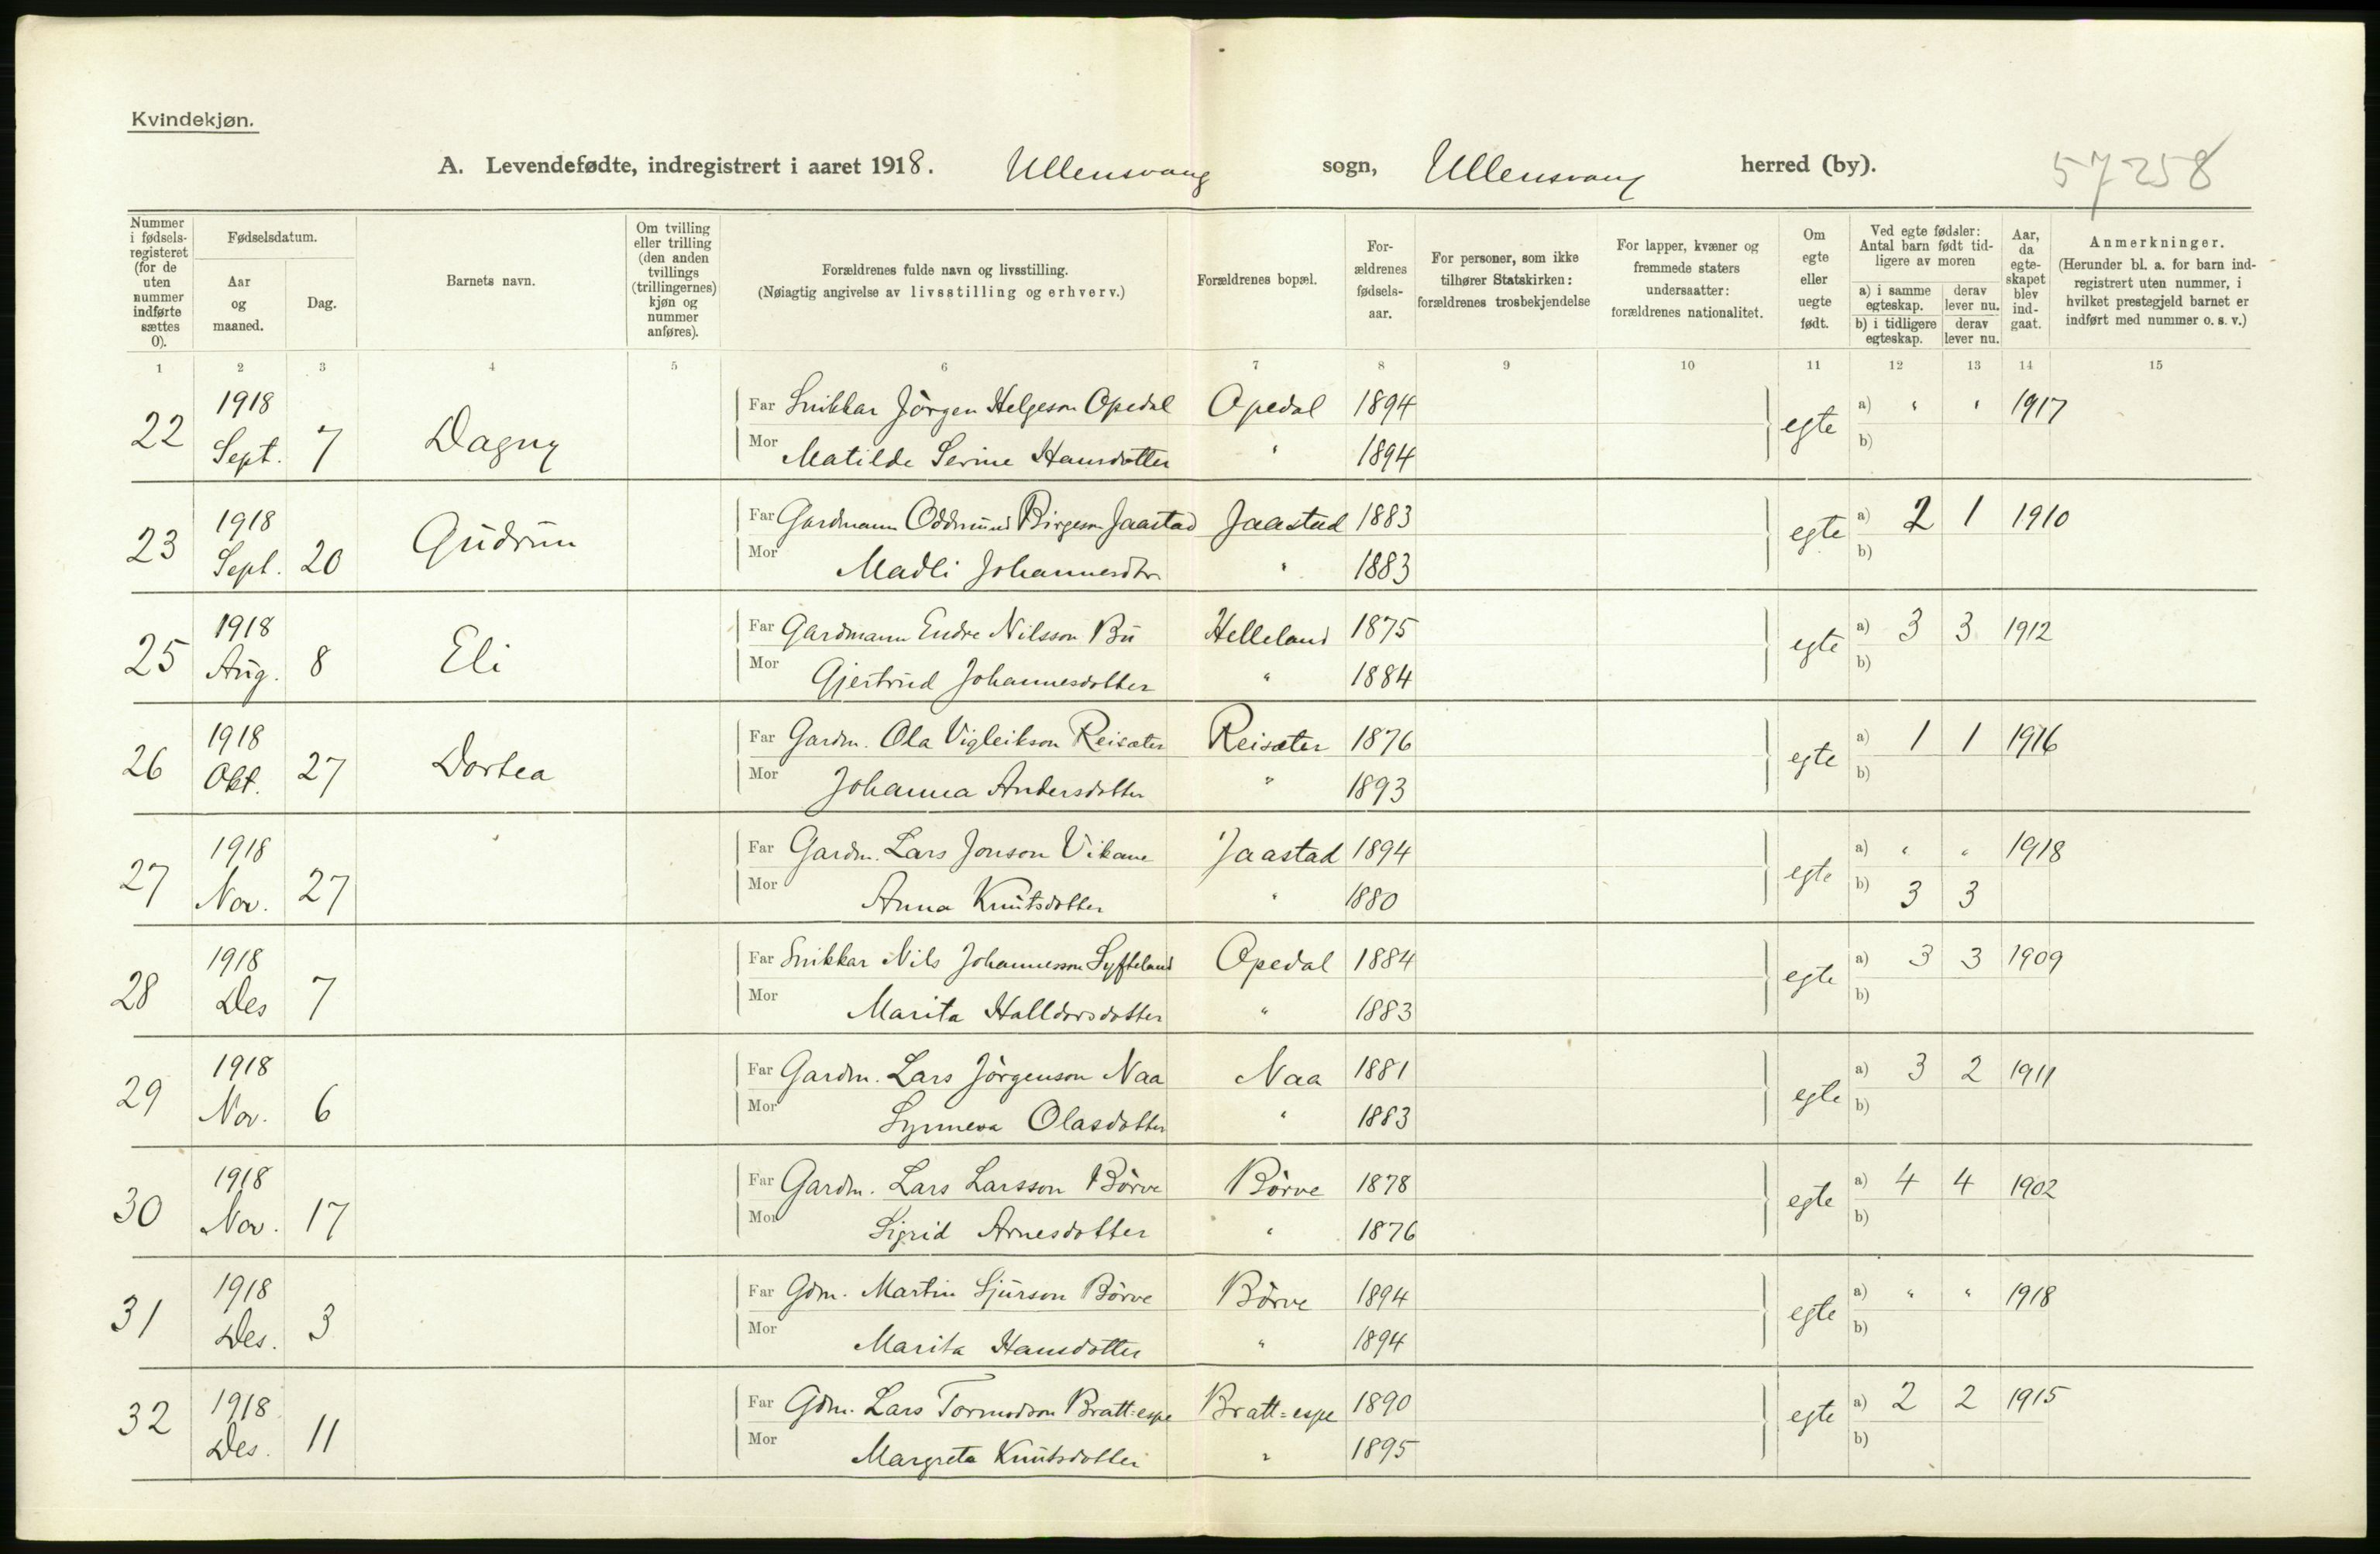 Kvindekjøn.
A. Levendefødte, indregistrert i aaret 1918. Ullensvang sogn, Ullensvang herred (by). 57258
Nummer i fødsels-registeret (for de uten nummer indførte sættes 0).
Fødselsdatum.
Aar og maaned.
Dag.
Barnets navn.
Om tvilling eller trilling (den anden tvillings (trillingernes) kjøn og nummer anføres).
Forældrenes fulde navn og livsstilling.
(Nøiagtig angivelse av livsstilling og erhverv.)
Forældrenes bopæl.
For-ældrenes fødsels-aar.
For personer, som ikke tilhører Statskirken: forældrenes trosbekjendelse
For lapper, kvæner og fremmede staters undersaatter: forældrenes nationalitet.
Om egte eller uegte født.
Ved egte fødsler: Antal barn født tid-ligere av moren
a) i samme egteskap. derav lever nu.
b) i tidligere egteskap. derav lever nu.
Aar, da egte-skapet blev ind-gaat.
Anmerkninger.
(Herunder bl. a. for barn ind-registrert uten nummer, i hvilket prestegjeld barnet er indført med nummer o. s. v.)
1 2 3 4 5 6 7 8 9 10 11 12 13 14 15
22 1918 Sept. 7 Dagny Far Snikkar Jörgen Helgeson Opedal Opedal 1894 egte a) " " 1917
Mor Matilde Serine Hansdotter " 1894 b)
23 1918 Sept. 20 Gudrun Far Gardmann Oddmund Birgeson Jaastad Jaastad 1883 egte a) 2 1 1910
Mor Madli Johannesdtr. " 1883 b)
25 1918 Aug. 8 Eli Far Gardmann Endre Nilsson Bu Helleland 1875 egte a) 3 3 1912
Mor Gjertrud Johannesdotter " 1884 b)
26 1918 Okt. 27 Dortea Far Gardm. Ola Vigleikson Reisæter Reisæter 1876 egte a) 1 1 1916
Mor Johanna Andersdotter " 1893 b)
27 1918 Nov. 27 Far Gardm. Lars Jonson Vikane Jaastad 1894 egte a) " " 1918
Mor Anna Knutsdotter " 1880 b) 3 3
28 1918 Des 7 Far Snikkar Nils Johannesson Syfteland Opedal 1884 egte a) 3 3 1909
Mor Marita Halldorsdotter " 1883 b)
29 1918 Nov. 6 Far Gardm. Lars Jörgenson Naa Naa 1881 egte a) 3 2 1911
Mor Synneva Olasdotter " 1883 b)
30 1918 Nov. 17 Far Gardm. Lars Larsson Börve Börve 1878 egte a) 4 4 1902
Mor Sigrid Arnesdotter " 1876 b)
31 1918 Des. 3 Far Gdm. Martin Sjurson Börve Börve 1894 egte a) " " 1918
Mor Marita Hansdotter " 1894 b)
32 1918 Des. 11 Far Gdm. Lars Tormodson Bratt=espe Bratt=espe 1890 egte a) 2 2 1915
Mor Margreta Knutsdotter " 1895 b)